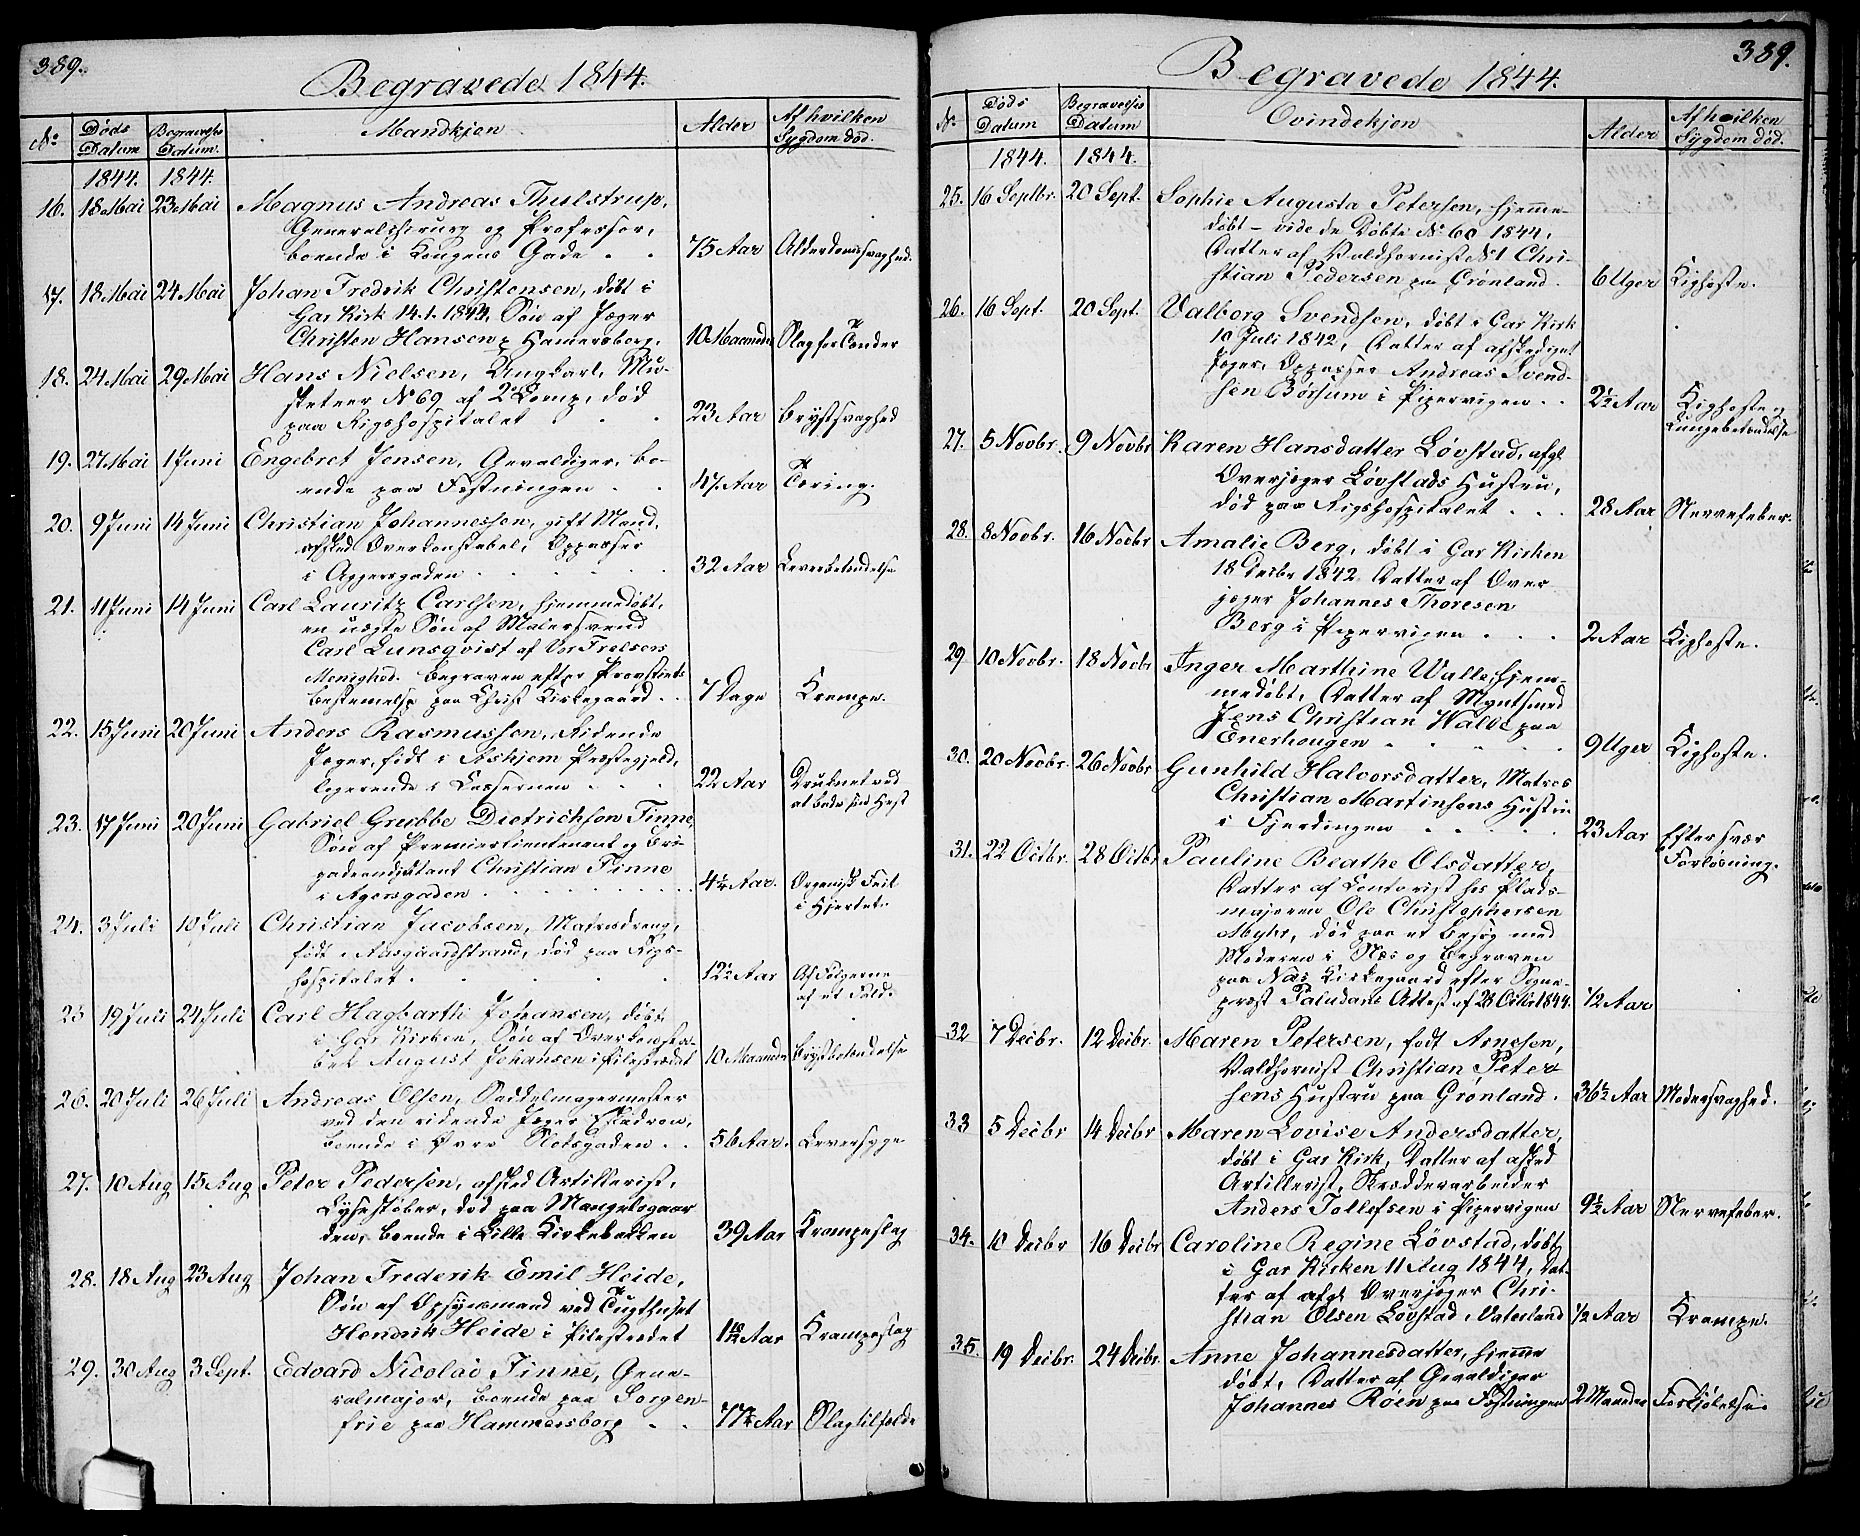 389.
Begravede 1844.
No Døds Datum Begravelses Datum. Mandkjøn Alder Af hvilken Sygdom død.
1844. 1844.
16. 18 Mai 23 Mai Magnus Andreas Thulstrup,
Generalchirurg og Professor,
boende i Kongens Gade . . 75 Aar Alderdomssvaghed.
17. 18 Mai 24 Mai Johan Fredrik Christensen, døbt i
Gar Kirk 14.1.1844, Søn af Jæger
Christen Hansen p Hamersborg. 10 Maaneder Slag for Tænder
18. 24 Mai 29 Mai Hans Nielsen, Ungkarl, Mu-
sketeer No 69 af 2 Comp, død
paa Rigshospitalet . . 23 Aar Brystsvaghed
19. 27 Mai 1 Juni Engebret Jensen, Gevaldiger, bo-
ende paa Fæstningen . . 47 Aar Tæring.
20. 9 Juni 14 Juni Christian Johannessen, gift Mand,
afsked Overkonstabel, Oppasser
i Aggersgaden . . . . 32 Aar Leverbetændelse
21. 11 Juni 14 Juni Carl Lauritz Carlsen, hjemmedøbt,
en uægte Søn af Malersvend
Carl Lunsqvist af Vor Frelsers
Menighed. Begraven efter Provstiets
bestemelse paa Christ Kirkegaard . . 7 Dage Krampe.
22. 15 Juni 20 Juni Anders Rasmussen, Ridende
Jæger, født i Askjem Præstegjeld,
logerende i Casernen . . . 22 Aar Druknet ved
at bade sin Hest
23. 17 Juni 20 Juni Gabriel Grubbe Dietrichson Finne,
Søn af Premierlieutenant og Bri-
gadeadjutant Christian Finne
i Agersgaden . . . . 4½ Aar. Organisk Feil
i Hjertet.
24. 3 Juli 10 Juli Christian Jacobsen, Matrosdreng,
født i Aasgaardstrand, død paa Rigs-
hospitalet . . . . 12½ Aar Af Følgerne
af et Fald.
25 19 Juli 24 Juli Carl Hagbarth Johansen, døbt
i Gar Kirken, Søn af Overkonsta-
bel August Johansen i Pilestrædet 10 Maaneder Brystbetændelse
26. 20 Juli 26 Juli Andreas Olsen, Saddelmagermester
ved den ridende Jæger Eskadron,
boende i Øvre Slotsgaden . . 56 Aar. Leversyge
27. 10 Aug 15 Aug Peter Pedersen, afsked Artillerist,
Lysestøber, død paa Mangelsgaar
den, boende i Lille Kirkebakken 39 Aar Krampeslag
28. 18 Aug 23 Aug Johan Frederik Emil Heide,
Søn af Opsynsmand ved Tugthuset
Hendrik Heide i Pilestrædet 1 10/12 Aar Krampeslag
29. 30 Aug 3 Sept. Edvard Nicolai Finne, Gene-
ralmajor, boende paa Sorgen-
frie paa Hammersborg . . 77½ Aar Slagtilfelde
389.
Begravede 1844.
No. Døds Datum Begravelses Datum Qvindekjøn Alder Af hvilken Sygdom død.
1844. 1844.
25. 16 Septbr. 20 Sept. Sophie Augusta Petersen, hjemme-
døbt – vide de Døbte No 60 1844,
Datter af Valdhornist No 1 Chri-
stian Pedersen paa Grønland. 6 Uger Kighoste.
26. 16 Sept. 20 Sept. Valborg Svendsen, døbt i Gar Kirk
10 Juli 1842, Datter af afskediget
Jæger, Oppasser Andreas Svend-
sen Børsum i Pipervigen . . 2½ Aar Kighoste og
Lungebetændelse
27. 5 Novbr. 9 Novbr Karen Hansdatter Løvstad, afgl
Overjæger Løvstads Hustru,
død paa Rigshospitalet . . . 28 Aar Nervefeber.
28. 8 Novbr. 16 Novbr Amalie Berg, døbt i Gar Kirken
18 Decbr 1842 Datter af Over
jæger Johannes Thoresen
Berg i Pipervigen . . . 2 Aar Kighoste.
29 10 Novbr. 18 Novbr Inger Marthine Walle, hjem-
medøbt, Datter af Myntsmed
Jens Christian Walle paa
Enerhougen . . . . 9 Uger Kighoste.
30. 20 Novbr. 26 Novbr Gunhild Halvorsdatter, Matros
Christian Martinsens Hustru
i Fjerdingen . . . . 23 Aar Efter svær
Forløsning.
31. 22 Octbr. 28 Octbr Pauline Beathe Olsdatter,
Datter af Contorist hos Plads-
majoren Ole Christophersen
Myhr, død paa et besøg med
Moderen i Næs og begraven
paa Næs Kirkegaard efter Sogne-
præst Paludans Attest af 28 Octbr 1844. ½ Aar
32 7 Decbr. 12 Decbr. Maren Petersen, født Arnesen,
Valdhornist Christian Peter
sens Hustru paa Grønland. 36½ Aar Modersvaghed.
33 5 Decbr 14 Decbr Maren Lovise Andersdatter,
døbt i Gar Kirk, Datter af afsked
Artillerist, Skrædderarbeider
Anders Tollefsen i Pipervigen 9½ Aar Nervefeber.
34. 10 Decbr 16 Decbr Caroline Regine Løvstad, døbt
i Gar Kirken 11 Aug 1844, Dat-
ter af afgl Overjæger Chri-
stian Olsen Løvstad i Vaterland ½ Aar Krampe.
35. 19 Decbr. 24 Decbr. Anne Johannesdatter, hjemme
døbt, Datter af Gevaldiger
Johannes Røen paa Fæstningen 2 Maaneder Forkjølelse